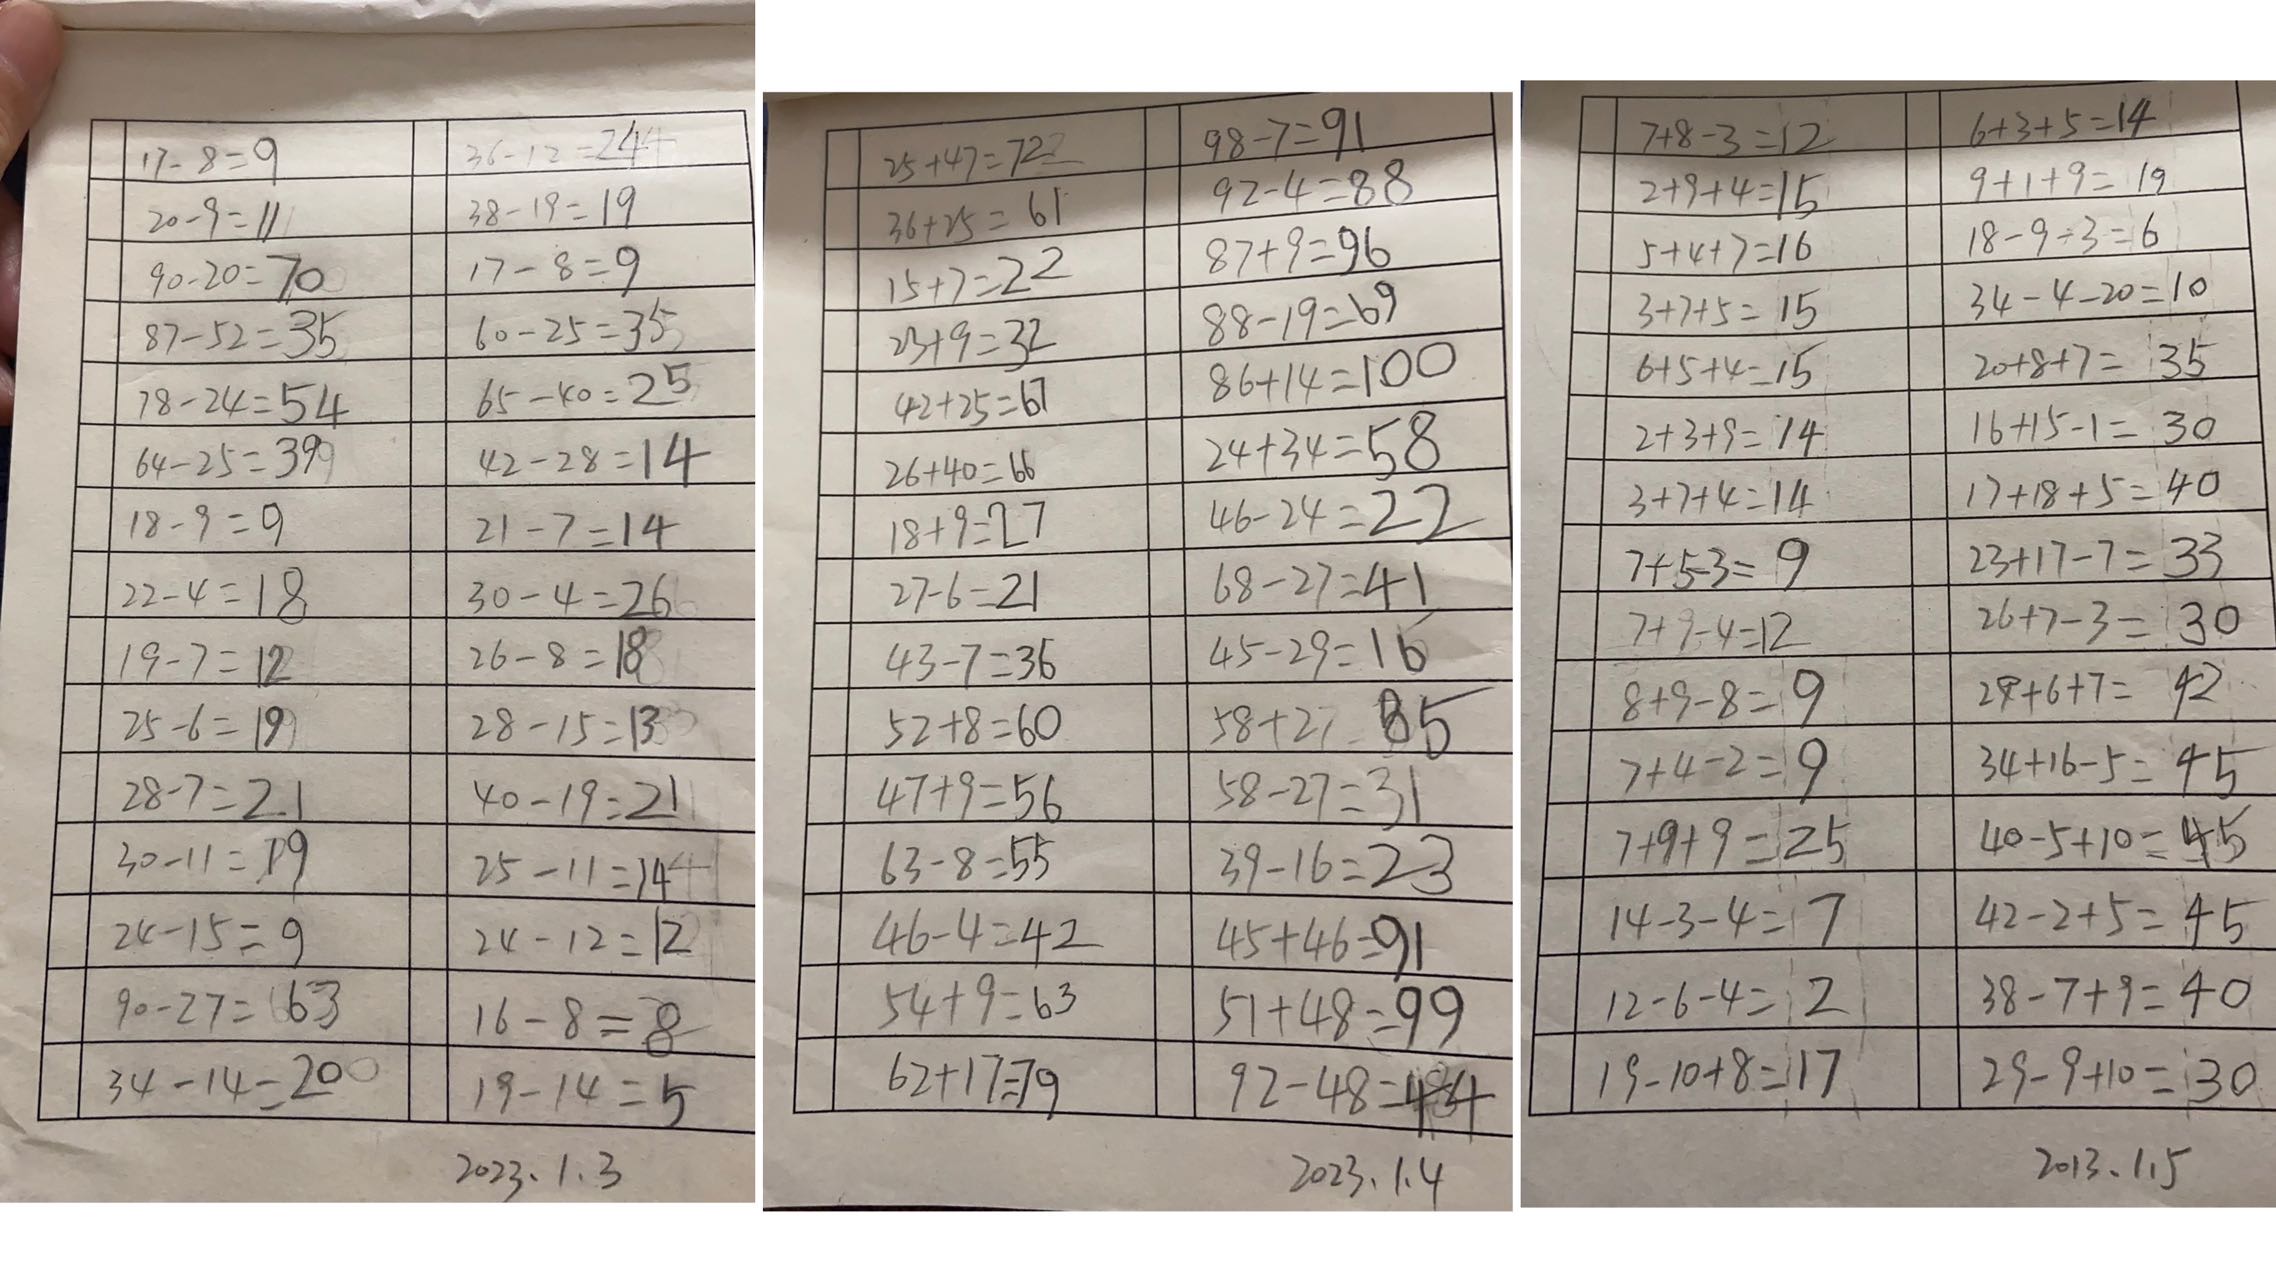 17-8=9
20-9=11
90-20=70
87-52=35
78-24=54
64-25=39
18-9=9
22-4=18
19-7=12
25-6=19
28-7=21
30-11=19
24-15=9
90-27=63
34-14=20
36-12=24
38-19=19
17-8=9
60-25=35
65-40=25
42-28=14
21-7=14
30-4=26
26-8=18
28-15=13
40-19=21
25-11=14
24-12=12
16-8=8
19-14=5
2023.1.3
25+47=72
36+25=61
15+7=22
23+9=32
42+25=67
26+40=66
18+9=27
27-6=21
43-7=36
52+8=60
47+9=56
63-8=55
46-4=42
54+9=63
62+17=79
98-7=91
92-4=88
87+9=96
88-19=69
86+14=100
24+34=58
46-24=22
68-27=41
45-29=16
58+27 85
58-27=31
39-16=23
45+46=91
51+48=99
92-48=44
2023.1.4
7+8-3=12
2+9+4=15
5+4+7=16
3+7+5=15
6+5+4=15
2+3+9=14
3+7+4=14
7+5-3=9
7+9-4=12
8+9-8=9
7+4-2=9
7+9+9=25
14-3-4=7
12-6-4=2
19-10+8=17
6+3+5=14
9+1+9=19
18-9-3=6
34-4-20=10
20+8+7=35
16+15-1=30
17+18+5=40
23+17-7=33
26+7-3=30
29+6+7=42
34+16-5=45
40-5+10=45
42-2+5=45
38-7+9=40
29-9+10=30
2013.1.5